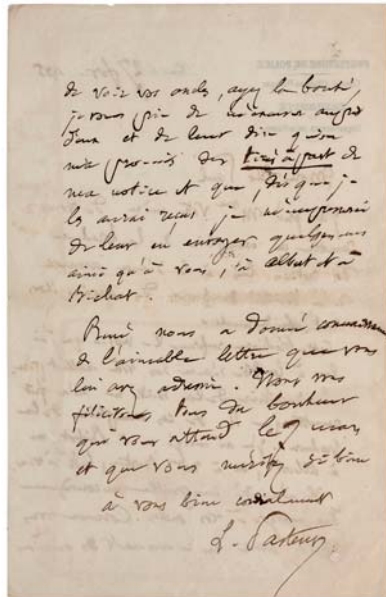 de voir vos oncles, ayez la bonté,
je vous prie de m'excuser auprès
d'eux et de leur dire qu'on
m'a promis des tirés à part de
ma notice et que, dès que je
les aurai reçus, je m'empresserai
de leur en envoyer quelques uns
ainsi qu'à vous, à Albert et à
Bichat.
René nous a donné connaissance
de l'aimable lettre que vous
lui avez adressée. Nous vous
félicitons tous du bonheur
qui vous attend le 7 mars
et que vous méritez si bien
à vous bien cordialement
L. Pasteur